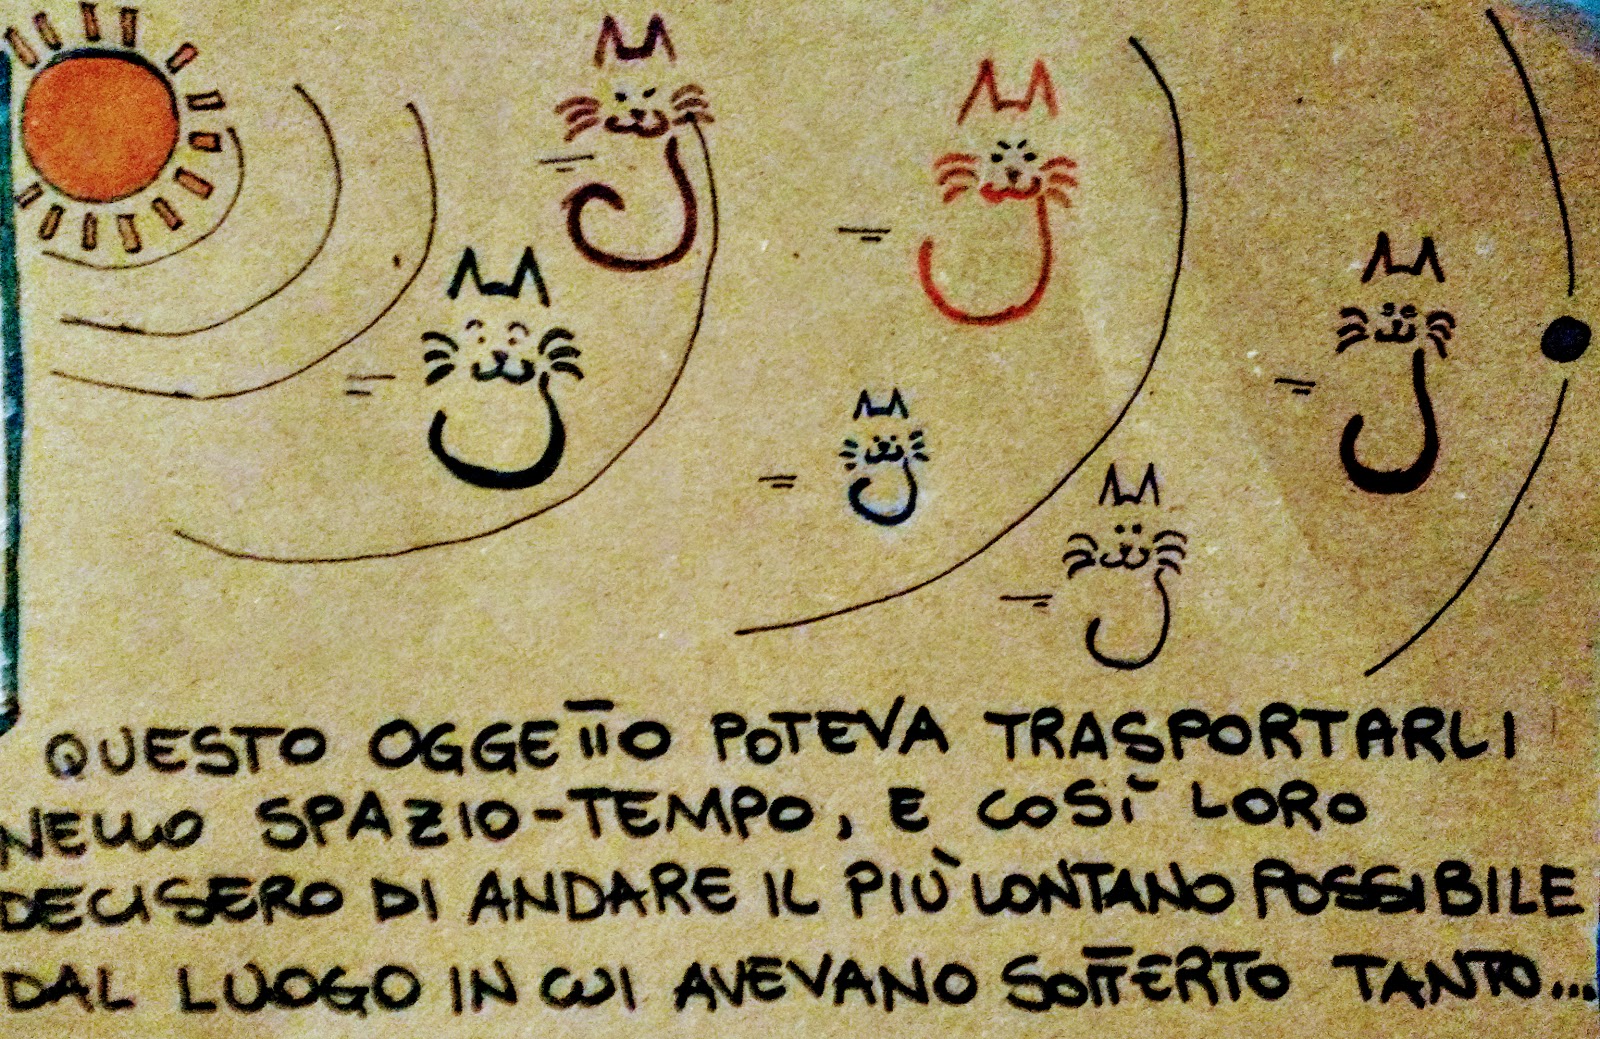 QUESTO OGGETTO POTEVA TRASPORTARLI
NELLO SPAZIO-TEMPO, E COSÌ LORO
DECISERO DI ANDARE IL PIÙ LONTANO POSSIBILE
DAL LUOGO IN CUI AVEVANO SOFFERTO TANTO...